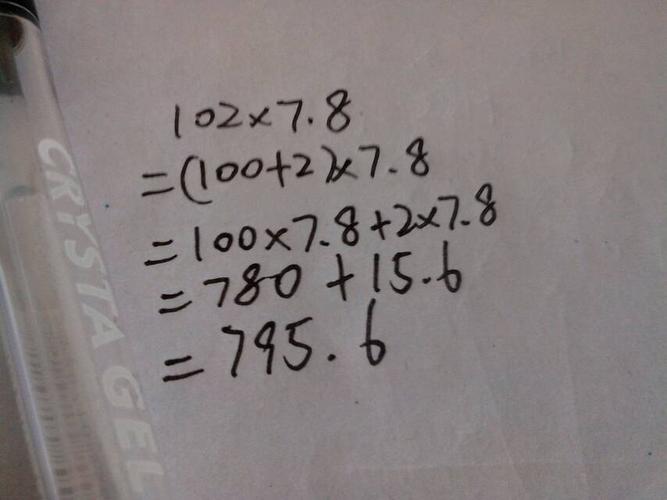 102×7.8
=(100+2)×7.8
=100×7.8+2×7.8
=780+15.6
=795.6
CRYSTA GEL